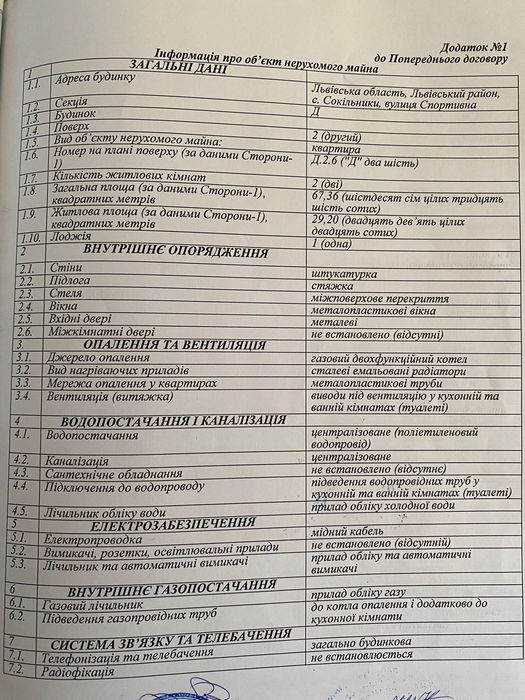 Додаток №1
до Попереднього договору
Інформація про об'єкт нерухомого майна
1 ЗАГАЛЬНІ ДАНІ
1.1. Адреса будинку Львівська область, Львівський район,
с. Сокільники, вулиця Спортивна
1.2. Секція
1.3. Будинок Д
1.4. Поверх 2 (другий)
1.5. Вид об'єкту нерухомого майна: квартира
1.6. Номер на плані поверху (за даними Сторони- Д.2.6 ("Д" два шість)
1)
1.7. Кількість житлових кімнат 2 (дві)
1.8. Загальна площа (за даними Сторони-1), 67,36 (шістдесят сім цілих тридцять
квадратних метрів шість сотих)
1.9. Житлова площа (за даними Сторони-1), 29,20 (двадцять дев'ять цілих
квадратних метрів двадцять сотих)
1.10. Лоджія 1 (одна)
2 ВНУТРІШНЄ ОПОРЯДЖЕННЯ
2.1. Стіни штукатурка
2.2. Підлога стяжка
2.3. Стеля міжповерхове перекриття
2.4. Вікна металопластикові вікна
2.5. Вхідні двері металеві
2.6. Міжкімнатні двері не встановлено (відсутні)
3. ОПАЛЕННЯ ТА ВЕНТИЛЯЦІЯ
3.1. Джерело опалення газовий двохфункційний котел
3.2. Вид нагріваючих приладів сталеві емальовані радіатори
3.3. Мережа опалення у квартирах металопластикові труби
3.4. Вентиляція (витяжка) виводи під вентиляцію у кухонній та
ванній кімнатах (туалеті)
4 ВОДОПОСТАЧАННЯ І КАНАЛІЗАЦІЯ
4.1. Водопостачання централізоване (поліетиленовий
водопровід)
4.2. Каналізація централізоване
4.3. Сантехнічне обладнання не встановлено (відсутнє)
4.4. Підключення до водопроводу підведення водопровідних труб у
кухонній та ванній кімнатах (туалеті)
4.5. Лічильник обліку води прилад обліку холодної води
5 ЕЛЕКТРОЗАБЕЗПЕЧЕННЯ
5.1. Електропроводка мідний кабель
5.2. Вимикачі, розетки, освітлювальні прилади не встановлено (відсутній)
5.3. Лічильник та автоматичні вимикачі прилад обліку та автоматичні
вимикачі
6 ВНУТРІШНЄ ГАЗОПОСТАЧАННЯ
6.1. Газовий лічильник прилад обліку газу
6.2. Підведення газопровідних труб до котла опалення і додатково до
кухонної кімнати
7 СИСТЕМА ЗВ'ЯЗКУ ТА ТЕЛЕБАЧЕННЯ
7.1. Телефонізація та телебачення загально будинкова
7.2. Радіофікація не встановлюється